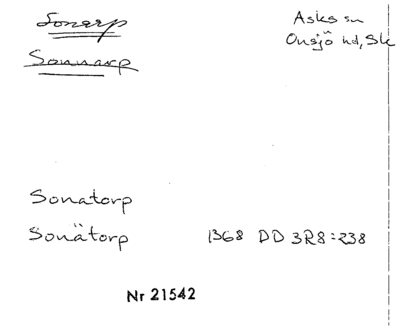 Sonarp Asks sn
Onsjö hd, Sk
Sonnarp
Sonatorp
Sonätorp 1368 DD 3R8:238
Nr 21542